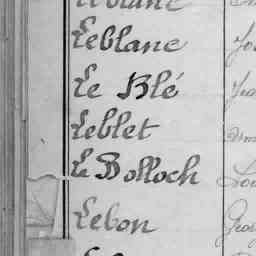 Leblanc
Leblanc
Le Blé
Leblet
Le Bolloch
Lebon